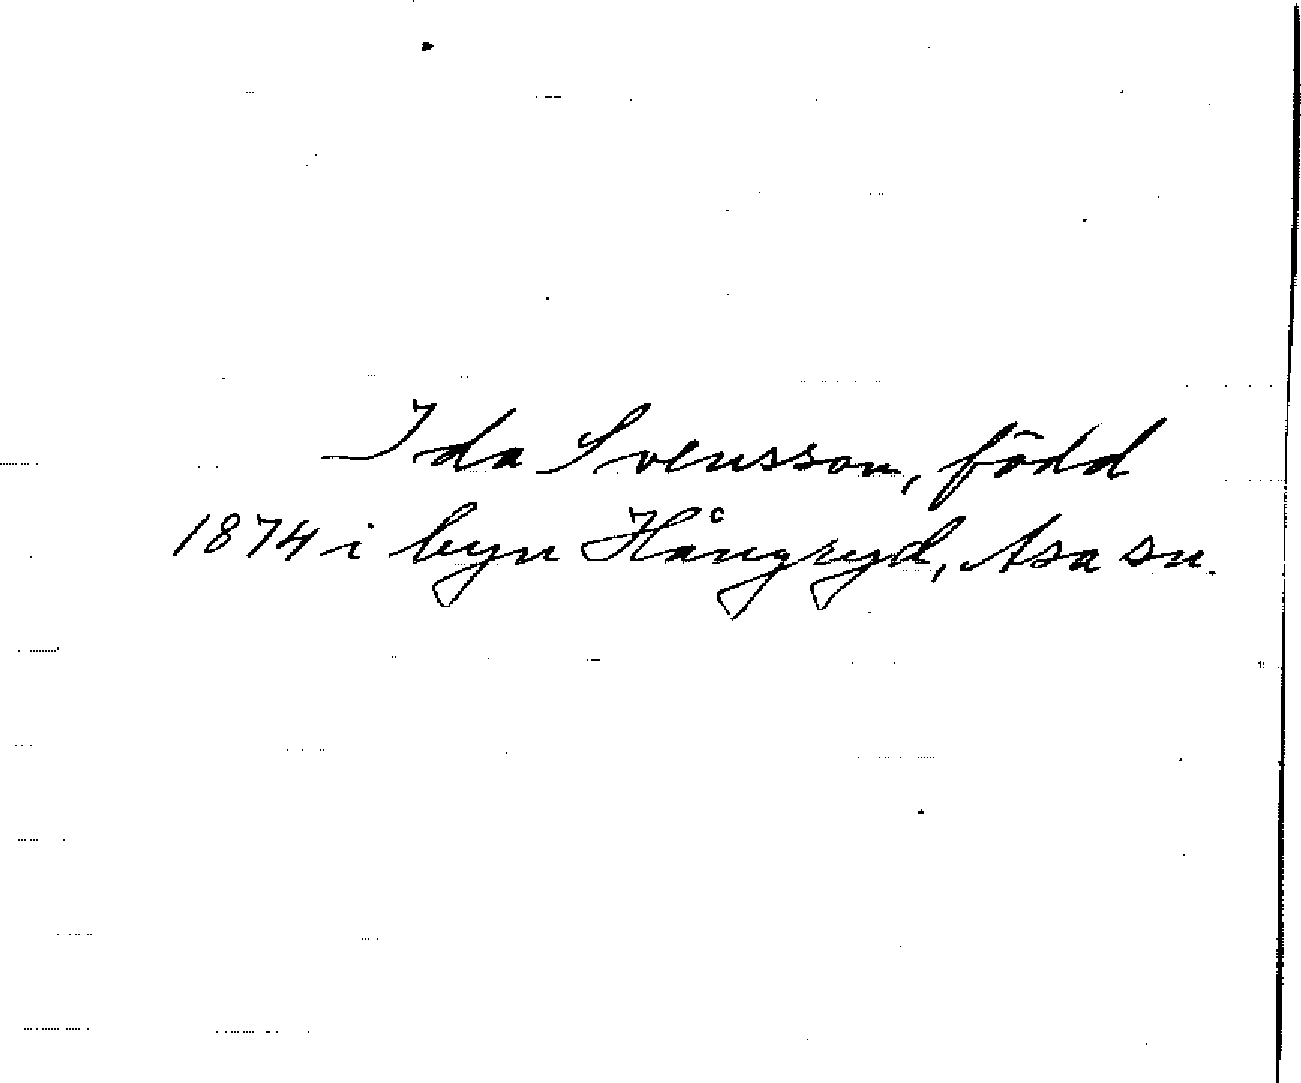 Ida Svensson, född
1874 i byn Hångryd, Asa sn.